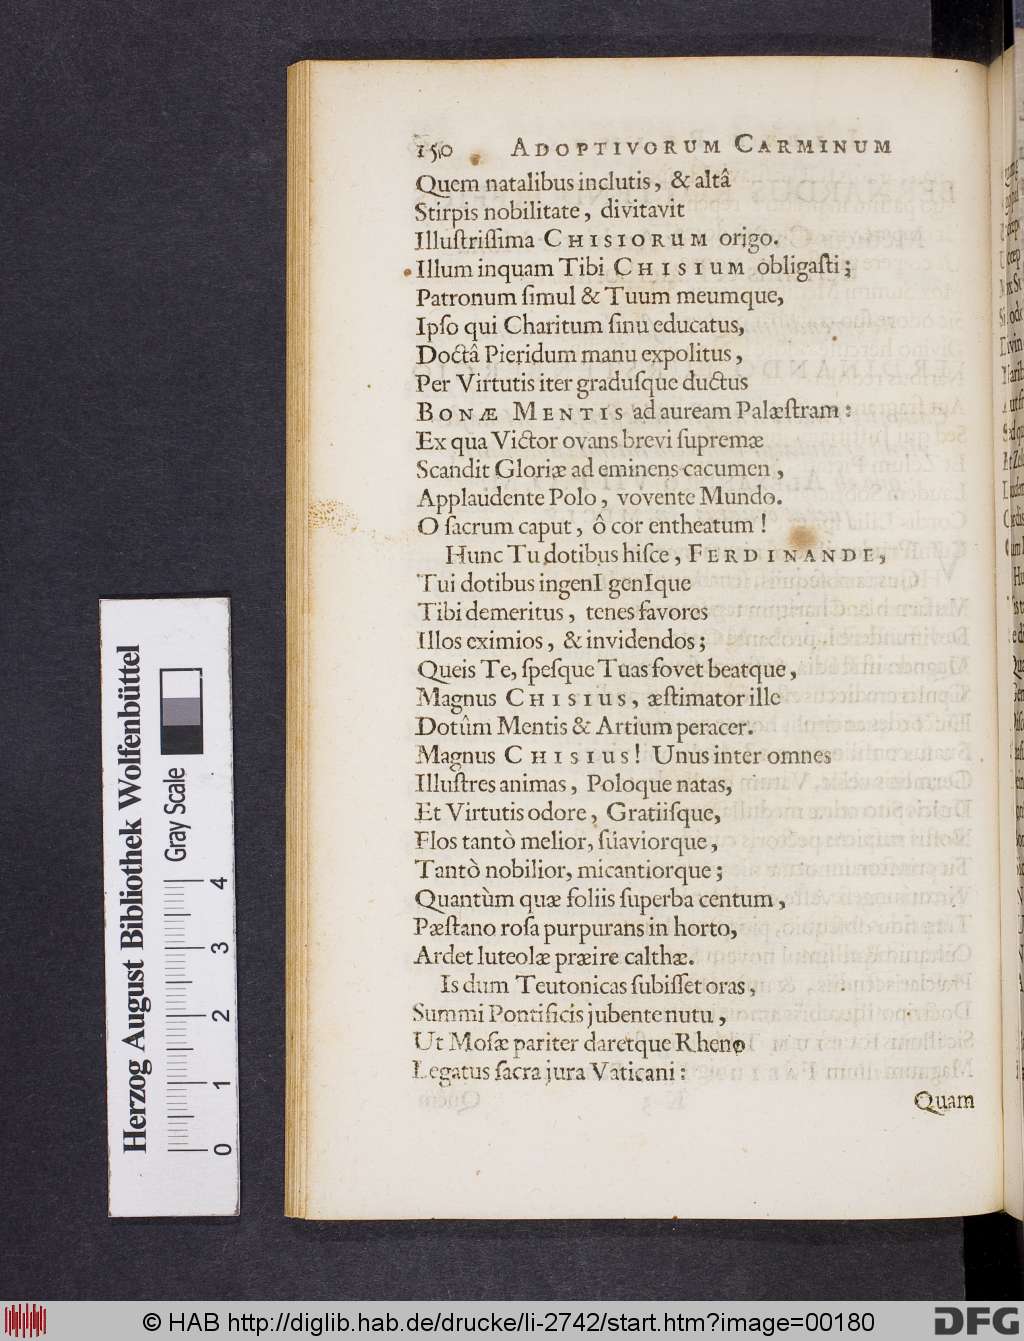 150 ADOPTIVORUM CARMINUM
Quem natalibus inclutis, & altâ
Stirpis nobilitate, divitavit
Illuſtriſſima CHISIORUM origo.
Illum inquam Tibi CHISIUM obligaſti;
Patronum ſimul & Tuum meumque,
Ipſo qui Charitum ſinu educatus,
Doctâ Pieridum manu expolitus,
Per Virtutis iter graduſque ductus
BONÆ MENTIS ad auream Palæſtram:
Ex qua Victor ovans brevi ſupremæ
Scandit Gloriæ ad eminens cacumen,
Applaudente Polo, vovente Mundo.
O ſacrum caput, ô cor entheatum!
Hunc Tu dotibus hiſce, FERDINANDE,
Tui dotibus ingenI genIque
Tibi demeritus, tenes favores
Illos eximios, & invidendos;
Queis Te, ſpeſque Tuas fovet beatque,
Magnus CHISIUS, æſtimator ille
Dotûm Mentis & Artium peracer.
Magnus CHISIUS! Unus inter omnes
Illuſtres animas, Poloque natas,
Et Virtutis odore, Gratiiſque,
Flos tantò melior, ſuaviorque,
Tantò nobilior, micantiorque;
Quantùm quæ foliis ſuperba centum,
Pæſtano roſa purpurans in horto,
Ardet luteolæ præire calthæ.
Is dum Teutonicas ſubiſſet oras,
Summi Pontificis jubente nutu,
Ut Moſæ pariter daretque Rheno
Legatus ſacra jura Vaticani:
Quam
Herzog August Bibliothek Wolfenbüttel
Gray Scale
0 1 2 3 4
© HAB http://diglib.hab.de/drucke/li-2742/start.htm?image=00180
DFG